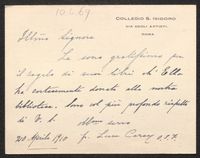 10.4.69
COLLEGIO S. ISIDORO
VIA DEGLI ARTISTI,
ROMA
Illmo Signore
Le sono gratissimo per
il regalo di suoi libri che Ella
ha cortesemente donato alla nostra
biblioteca. Sono col più profondo rispetto
di V. S.
20 Aprile 1910
fr. Luca Carey O.F.M.